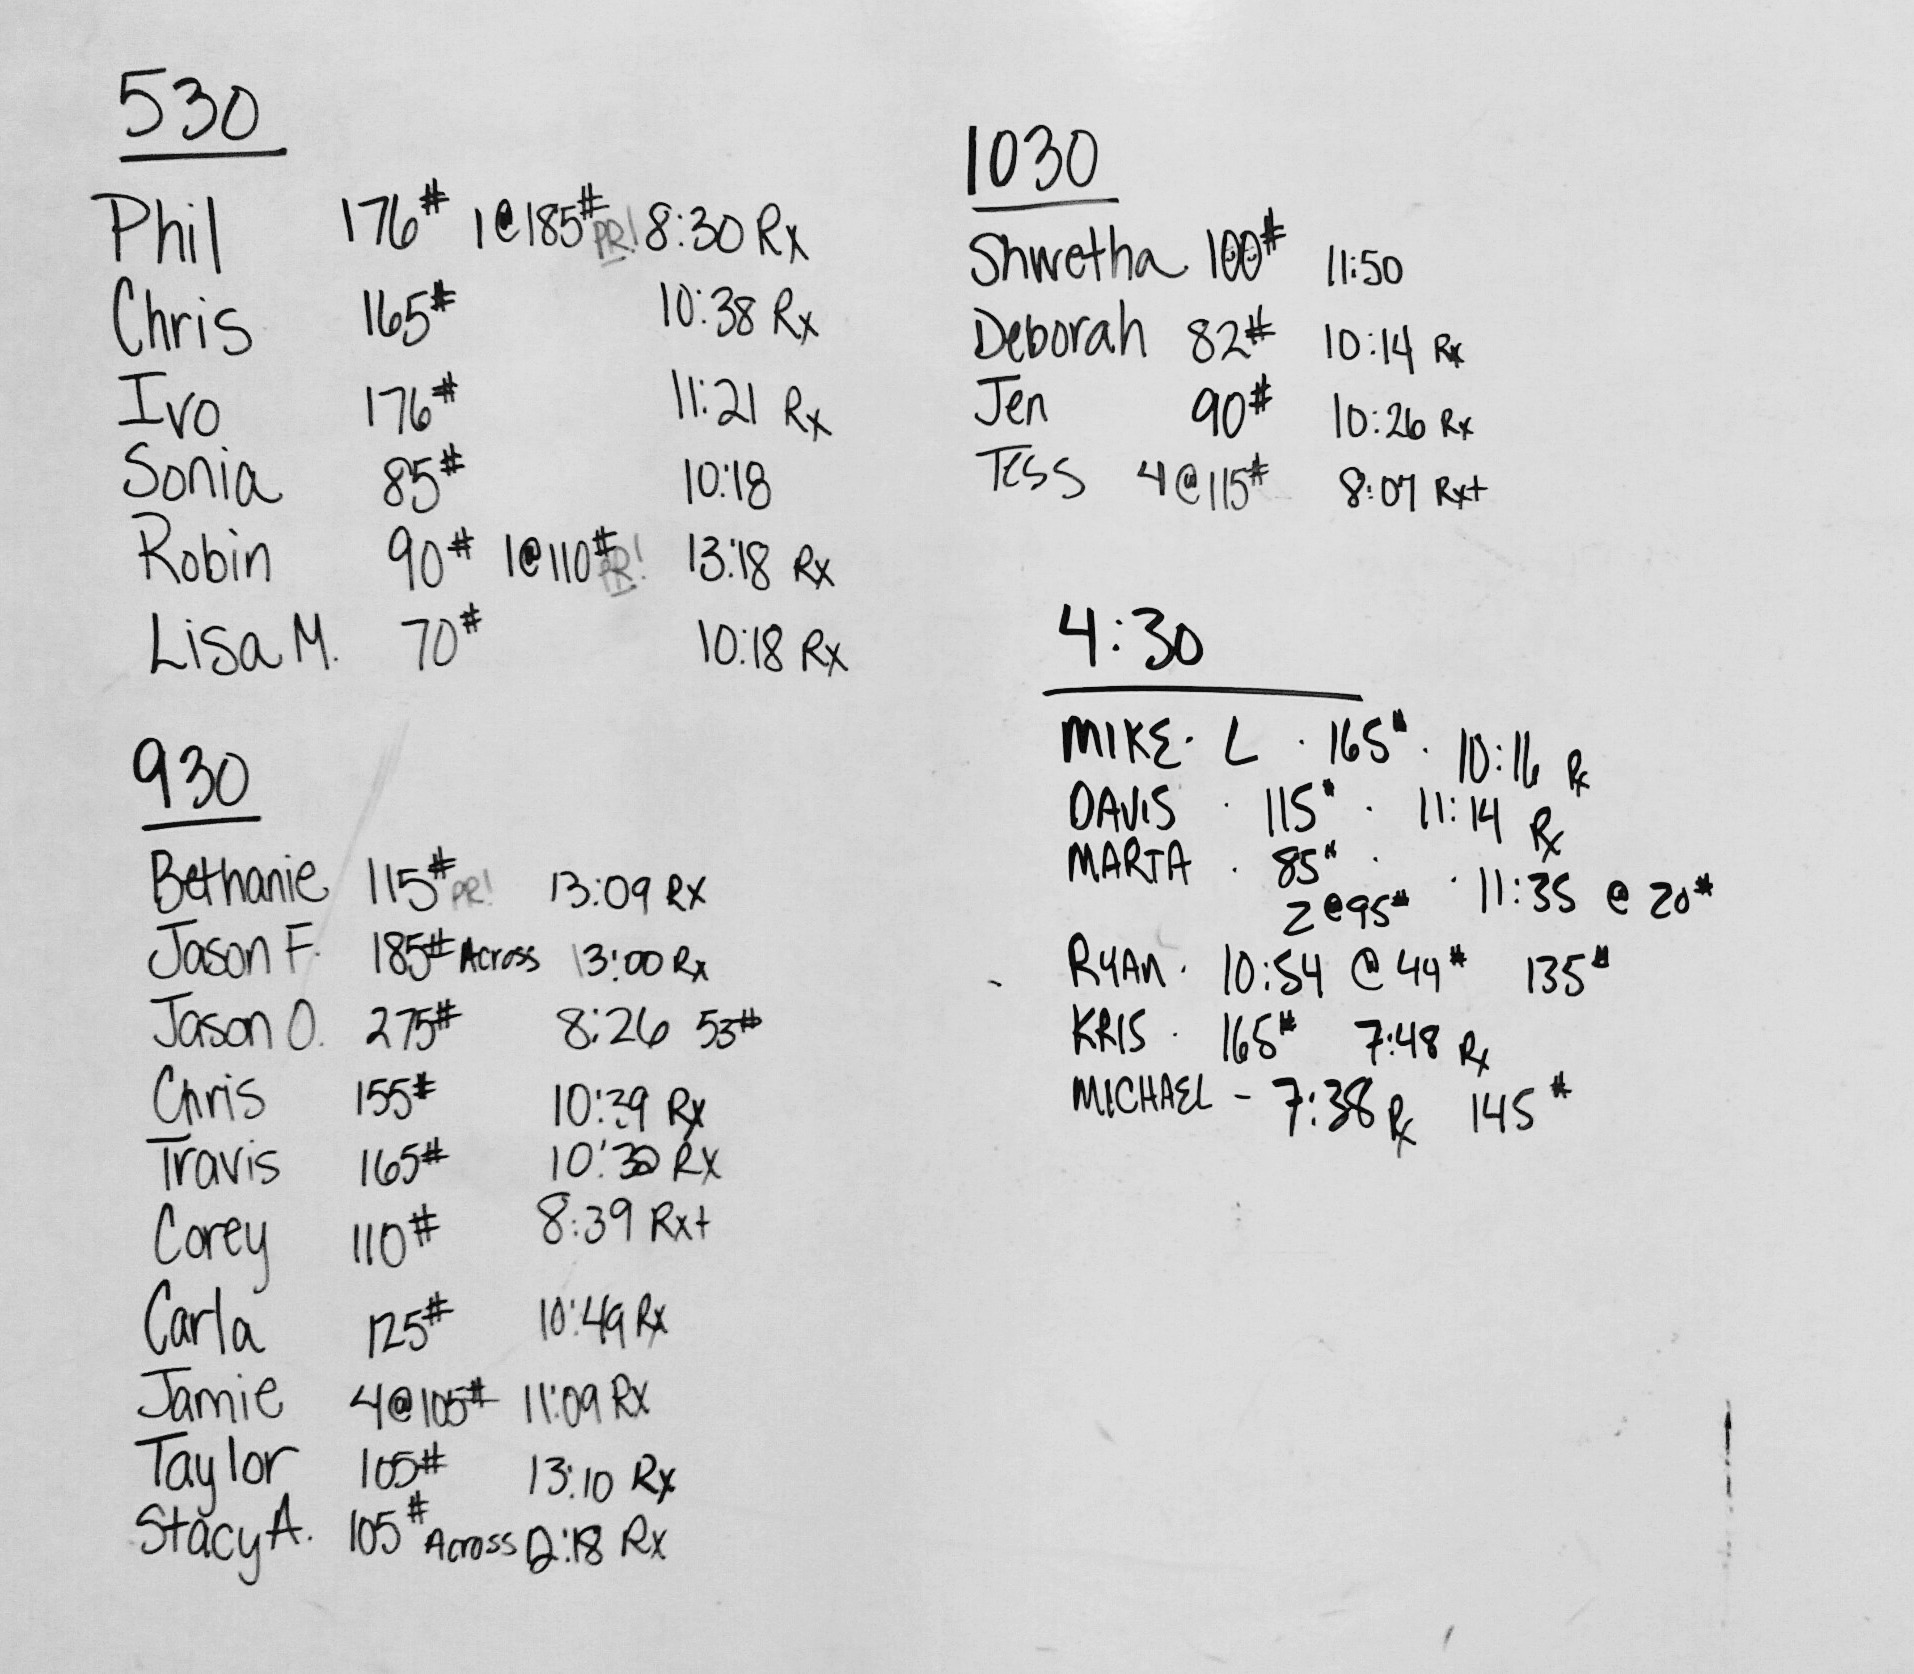 530
Phil 176# 1@185# PR! 8:30 Rx
Chris 165# 10:38 Rx
Ivo 176# 11:21 Rx
Sonia 85# 10:18
Robin 90# 1@110# PR! 13:18 Rx
Lisa M. 70# 10:18 Rx
930
Bethanie 115# PR! 13:09 Rx
Jason F. 185# Across 13:00 Rx
Jason O. 275# 8:26 53#
Chris 155# 10:39 Rx
Travis 165# 10:30 Rx
Corey 110# 8:39 Rx+
Carla 125# 10:49 Rx
Jamie 4@105# 11:09 Rx
Taylor 105# 13:10 Rx
Stacy A. 105# Across 12:18 Rx
1030
Shwetha 100# 11:50
Deborah 82# 10:14 Rx
Jen 90# 10:26 Rx
Tess 4@115# 8:07 Rx+
4:30
MIKE · L · 165# · 10:16 Rx
DAVIS · 115# · 11:14 Rx
MARTA · 85# ·
2@95# · 11:35 @ 20#
RYAN · 10:54 @ 44# 135#
KRIS · 165# 7:48 Rx
MICHAEL - 7:38 Rx 145#